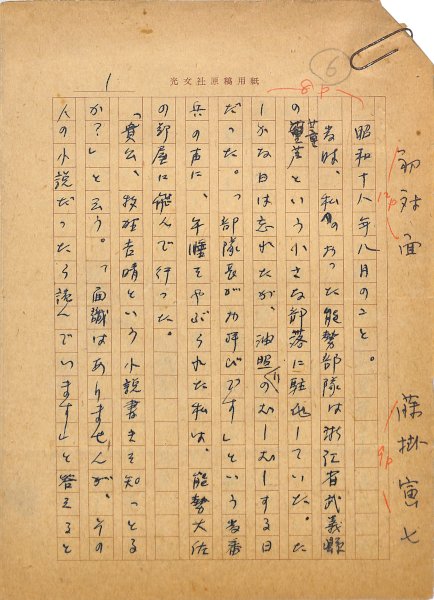 初対面
藤掛寅七
光文社原稿用紙
1
6
8P
12P
9P
昭和十八年八月のこと。
当時、私のおった能勢部隊は浙江省武義県
の董塘という小さな部落に駐屯していた。た
しかな日は忘れたが、油照りのむしむしする日
だった。「部隊長がお呼びです」という当番
兵の声に、午睡をやぶられた私は、能勢大佐
の部屋に飛んで行った。
「貴公、牧野吉晴という小説書きを知っとる
か?」と云う。「面識はありませんが、その
人の小説だったら読んでいます」と答えると